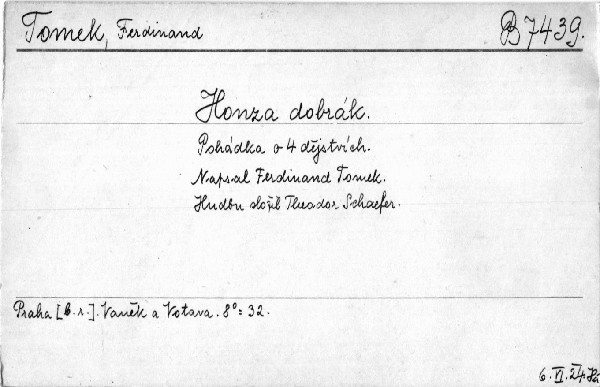 Tomek, Ferdinand B 7439.
Honza dobrák.
Pohádka o 4 dějstvích.
Napsal Ferdinand Tomek.
Hudbu složil Theodor Schaefer.
Praha [b.r.]. Vaněk a Votava. 8°: 32.
6. VI. 24.